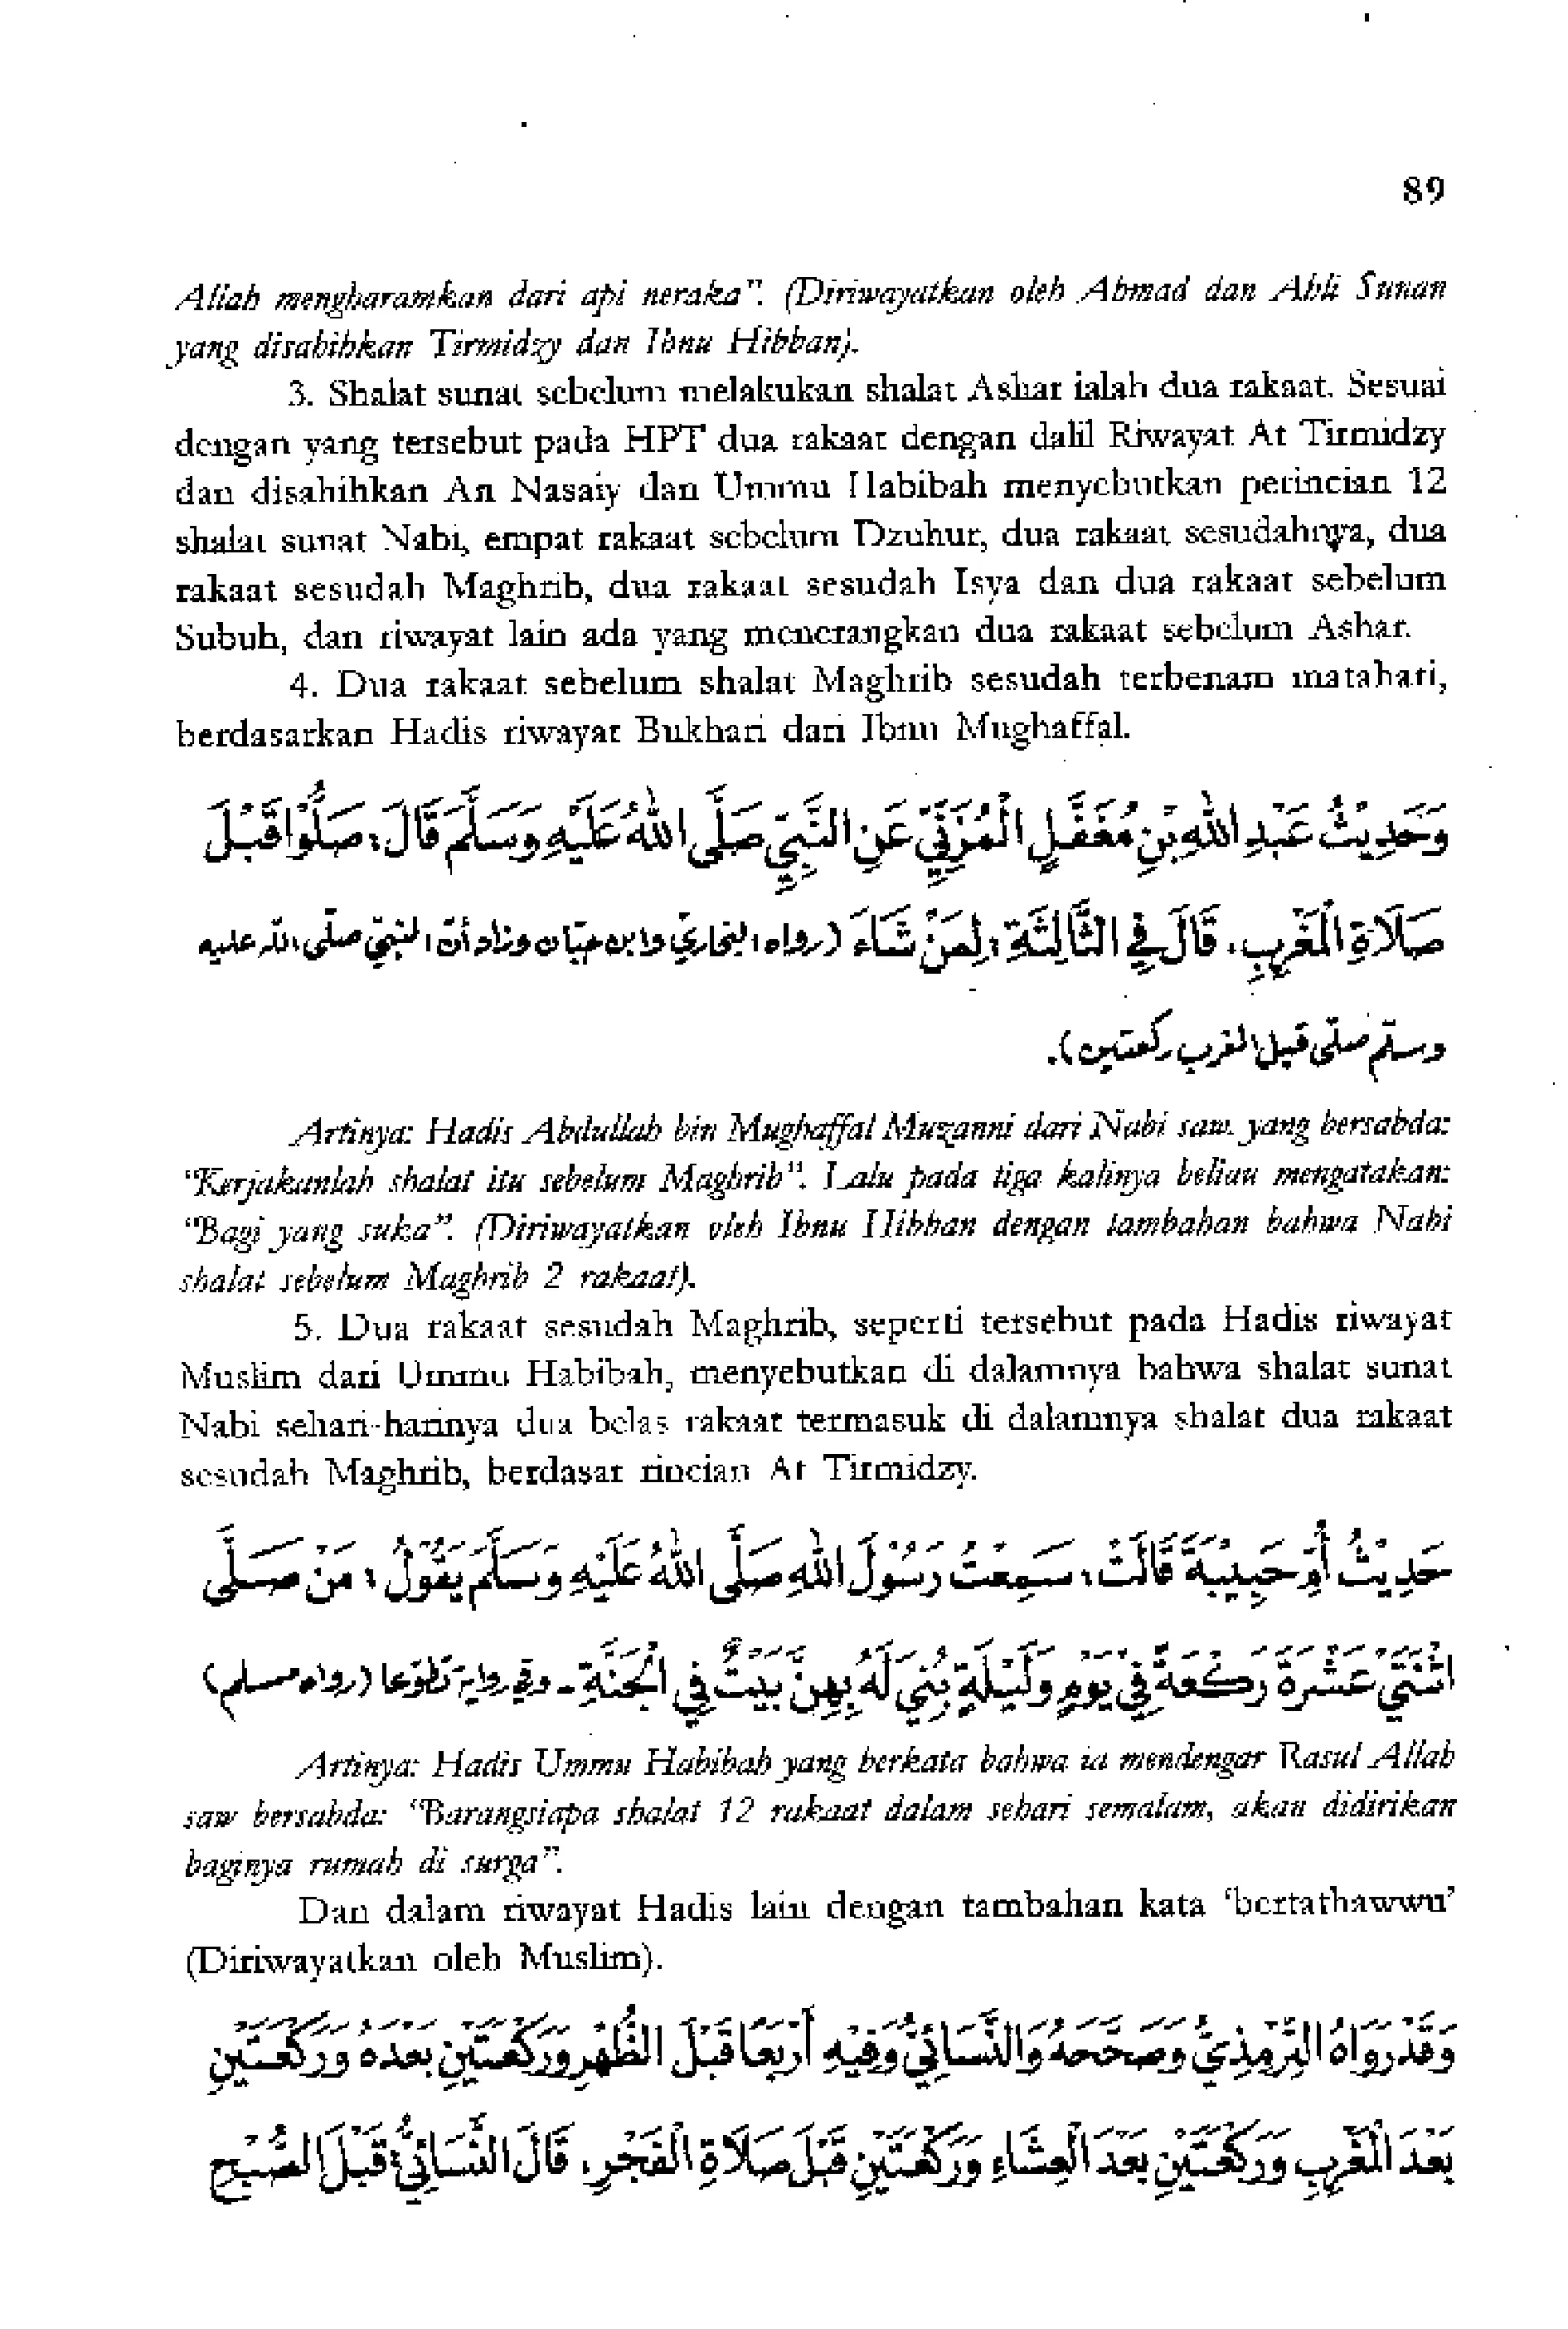 89
Allah mengharamkan dari api neraka". (Diriwayatkan oleh Ahmad dan Ahli Sunan
yang disahihkan Tirmidzy dan Ibnu Hibban).
3. Shalat sunat sebelum melakukan shalat Ashar ialah dua rakaat. Sesuai
dengan yang tersebut pada HPT dua rakaat dengan dalil Riwayat At Tirmidzy
dan disahihkan An Nasaiy dan Ummu Habibah menyebutkan perincian 12
shalat sunat Nabi, empat rakaat sebelum Dzuhur, dua rakaat sesudahnya, dua
rakaat sesudah Maghrib, dua rakaat sesudah Isya dan dua rakaat sebelum
Subuh, dan riwayat lain ada yang menerangkan dua rakaat sebelum Ashar.
4. Dua rakaat sebelum shalat Maghrib sesudah terbenam matahari,
berdasarkan Hadis riwayat Bukhari dari Ibnu Mughaffal.
وَحَدِيْثُ عَبْدِ اللهِ بْنِ مُغَفَّلٍ الْمُزَنِيِّ عَنِ النَّبِيِّ صَلَّى اللهُ عَلَيْهِ وَسَلَّمَ قَالَ: صَلُّوا قَبْلَ
صَلَاةِ الْمَغْرِبِ. قَالَ فِي الثَّالِثَةِ: لِمَنْ شَاءَ (رواه البخاري وابن حبّان وزاد أنّ النبيّ صلّى الله عليه
وسلّم صلّى قبل المغرب ركعتين).
Artinya: Hadis Abdullah bin Mughaffal Muzanni dari Nabi saw. yang bersabda:
"Kerjakanlah shalat itu sebelum Maghrib". Lalu pada tiga kalinya beliau mengatakan:
"Bagi yang suka". (Diriwayatkan oleh Ibnu Hibban dengan tambahan bahwa Nabi
shalat sebelum Maghrib 2 rakaat).
5. Dua rakaat sesudah Maghrib, seperti tersebut pada Hadis riwayat
Muslim dari Ummu Habibah, menyebutkan di dalamnya bahwa shalat sunat
Nabi sehari-harinya dua belas rakaat termasuk di dalamnya shalat dua rakaat
sesudah Maghrib, berdasar rincian At Tirmidzy.
حَدِيْثُ أُمِّ حَبِيْبَةَ قَالَتْ: سَمِعْتُ رَسُوْلَ اللهِ صَلَّى اللهُ عَلَيْهِ وَسَلَّمَ يَقُوْلُ: مَنْ صَلَّى
اثْنَتَيْ عَشْرَةَ رَكْعَةً فِي يَوْمٍ وَلَيْلَةٍ بُنِيَ لَهُ بِهِنَّ بَيْتٌ فِي الْجَنَّةِ - وفي رواية تَطَوُّعا (رواه مسلم)
Artinya: Hadis Ummu Habibah yang berkata bahwa ia mendengar Rasul Allah
saw bersabda: "Barangsiapa shalat 12 rakaat dalam sehari semalam, akan didirikan
baginya rumah di surga".
Dan dalam riwayat Hadis lain dengan tambahan kata 'bertathawwu'
(Diriwayatkan oleh Muslim).
وَقَدْ رَوَاهُ التِّرْمِذِيُّ وَصَحَّحَهُ وَالنَّسَائِيُّ وَفِيْهِ أَرْبَعًا قَبْلَ الظُّهْرِ وَرَكْعَتَيْنِ بَعْدَهُ وَرَكْعَتَيْنِ
بَعْدَ الْمَغْرِبِ وَرَكْعَتَيْنِ بَعْدَ الْعِشَاءِ وَرَكْعَتَيْنِ قَبْلَ صَلَاةِ الْفَجْرِ. قَالَ النَّسَائِيُّ: قَبْلَ الصُّبْحِ